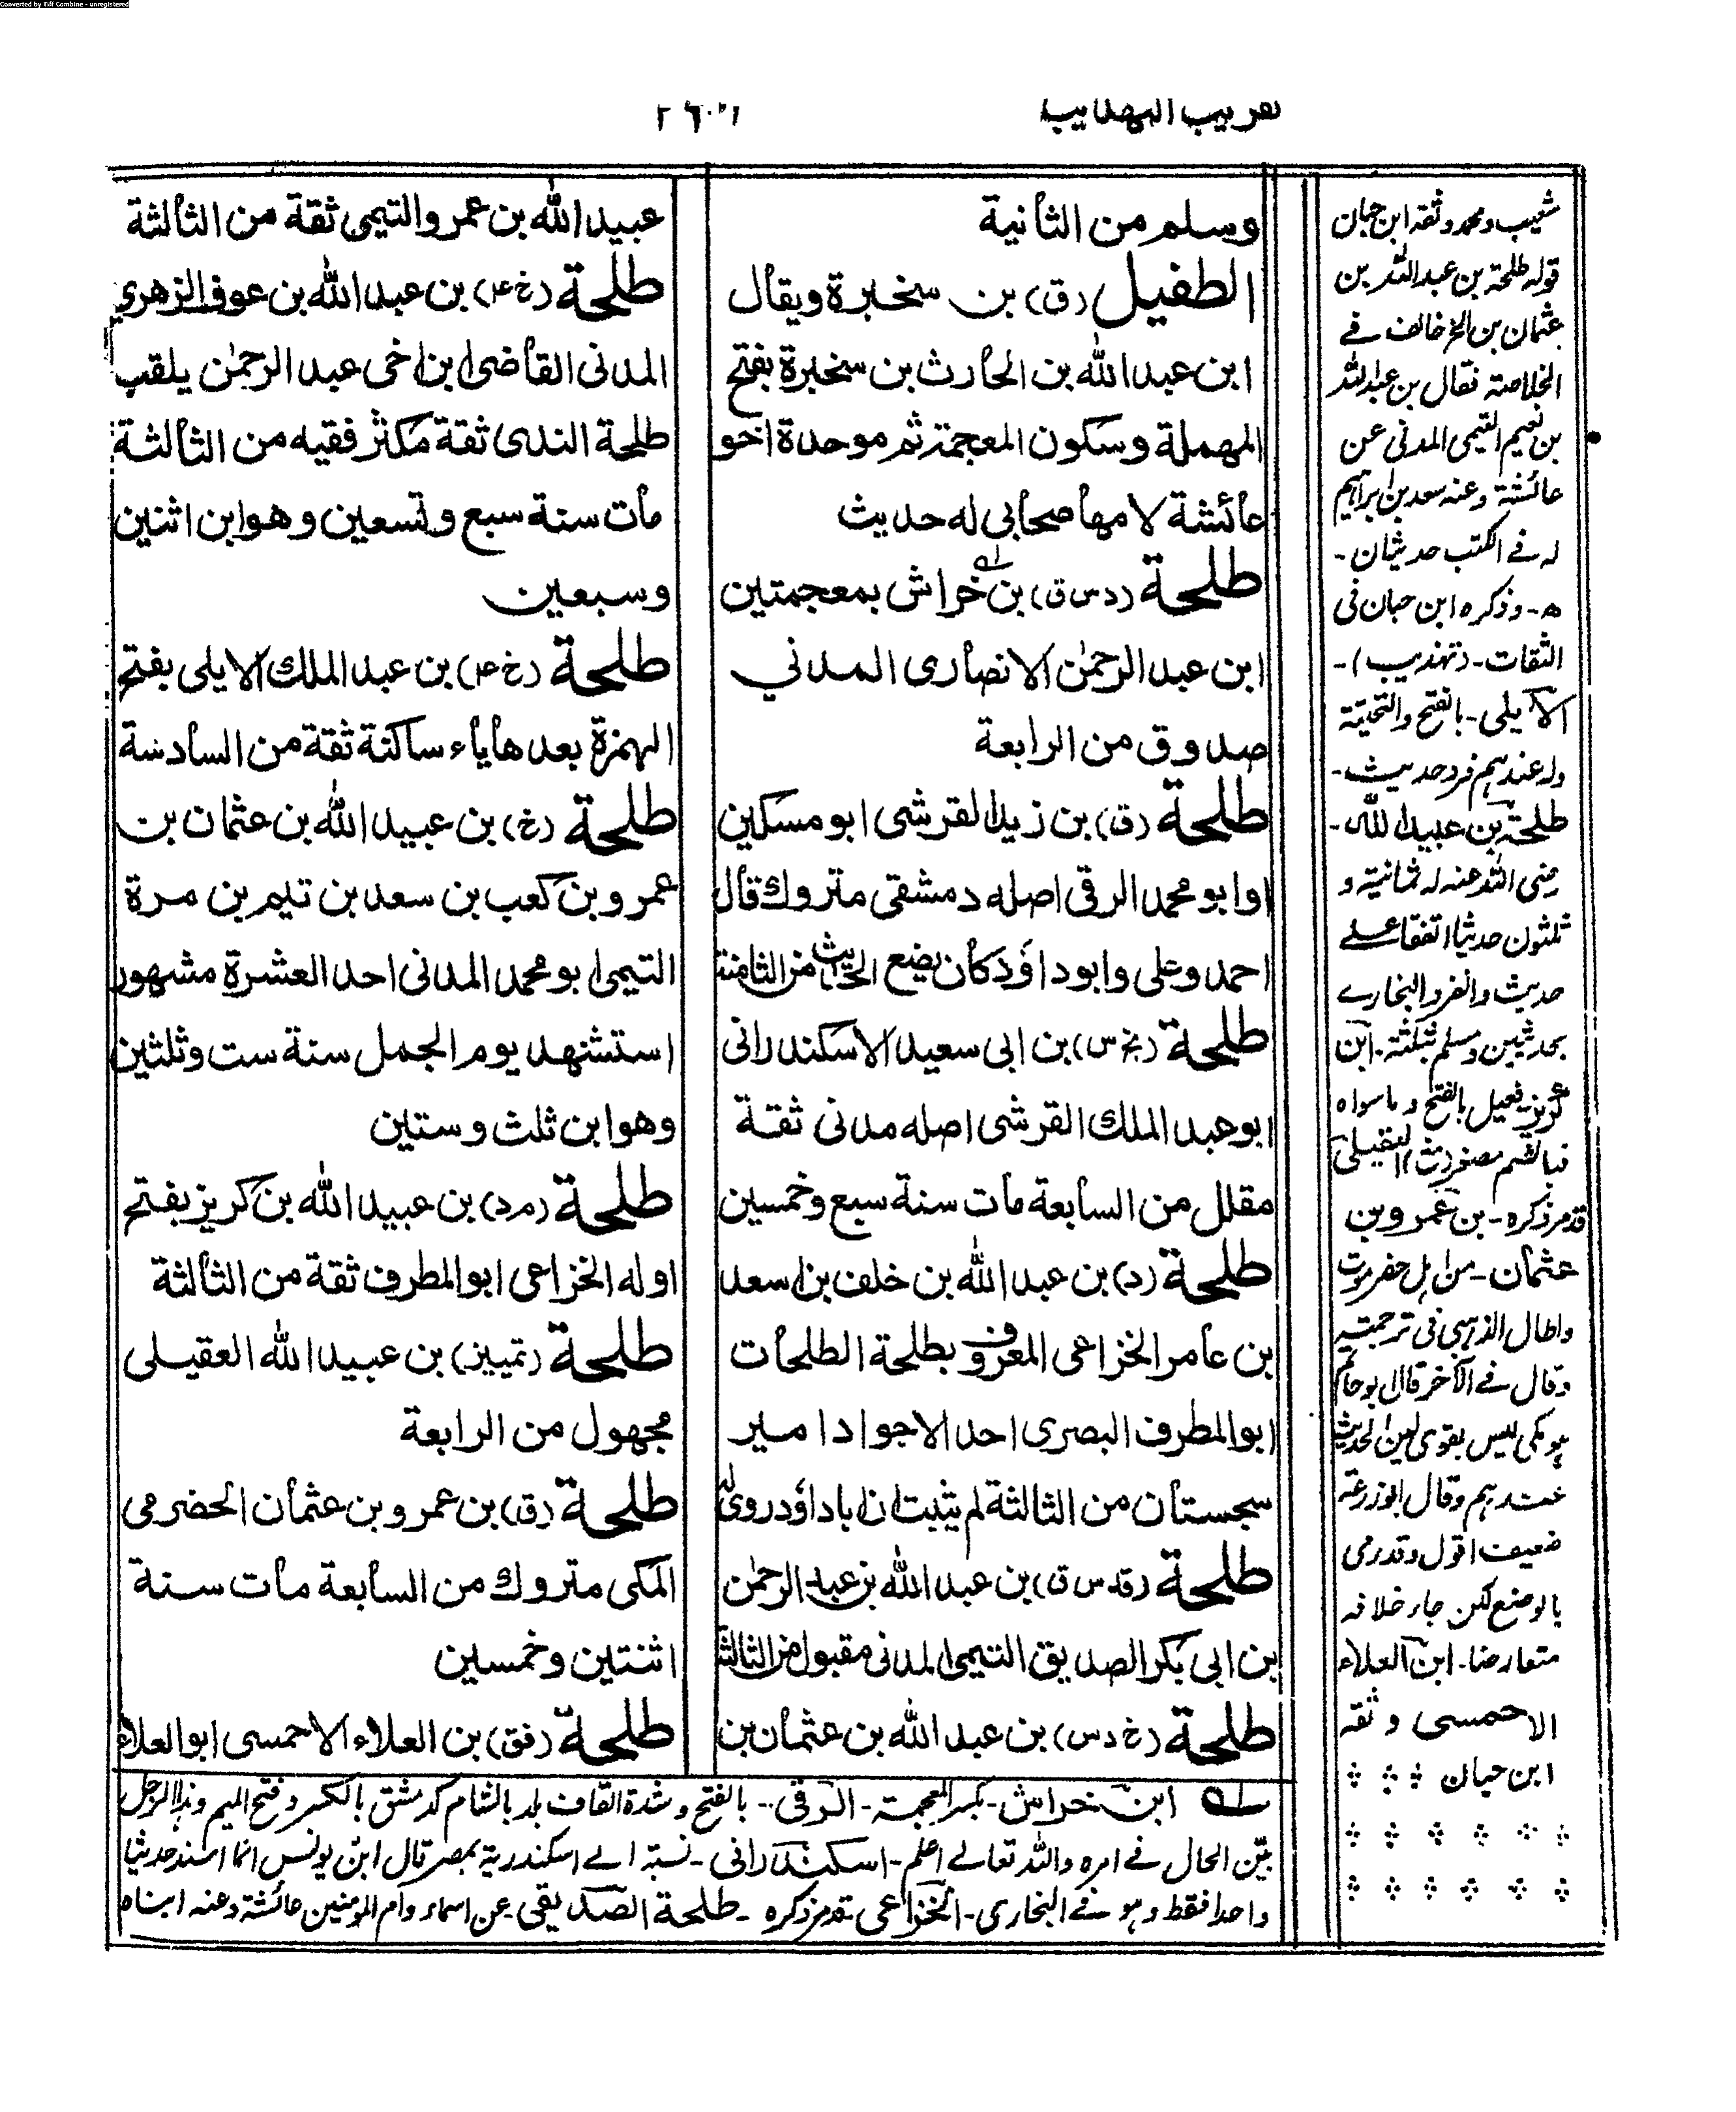 Converted by Tiff Combine - unregistered
تقريب التهذيب
وسلم من الثانية
الطفيل (ق) بن سخبرة ويقال
ابن عبدالله بن الحارث بن سخبرة بفتح
المهملة وسكون المعجمة ثم موحدة اخو
عائشة لامها صحابی له حدیث
طلحة (دس ق) بن خراش بمعجمتين
ابن عبد الرحمٰن الانصاری المدني
صدوق من الرابعة
طلحة (ق) بن زید القرشی ابو مسکین
اوابو محمد الرقی اصله دمشقی متروك قال
احمد وعلی وابوداؤد کان یضع الحدیث من الثامنة
طلحة (بخ س) بن ابی سعید الاسکندرانی
ابو عبد الملك القرشی اصله مدنی ثقة
مقلل من السابعة مات سنة سبع وخمسین
طلحة (د) بن عبد الله بن خلف بن اسعد
بن عامر الخزاعی المعروف بطلحة الطلحات
ابو المطرف البصری احد الاجواد امیر
سجستان من الثالثة لم یثبت ان ابا داؤد روی له
طلحة (قد س ق) بن عبد الله بن عبد الرحمٰن
بن ابی بکر الصدیق التیمی المدنی مقبول من الثالثة
طلحة (خ دس) بن عبد الله بن عثمان بن
عبید الله بن عمر والتیمی ثقة من الثالثة
طلحة (خ ۴) بن عبد الله بن عوف الزهري
المدنی القاضی ابن اخی عبد الرحمٰن یلقب
طلحة الندی ثقة مکثر فقیه من الثالثة
مات سنة سبع وتسعین وهو ابن اثنین
وسبعین
طلحة (خ ۴) بن عبد الملك الایلی بفتح
الهمزة بعدها یاء ساکنة ثقة من السادسة
طلحة (ع) بن عبید الله بن عثمان بن
عمرو بن کعب بن سعد بن تیم بن مرة
التیمی ابو محمد المدنی احد العشرة مشهور
استشهد یوم الجمل سنة ست وثلثین
وهو ابن ثلث وستین
طلحة (م د) بن عبید الله بن کریز بفتح
اوله الخزاعی ابو المطرف ثقة من الثالثة
طلحة (تمییز) بن عبید الله العقیلی
مجهول من الرابعة
طلحة (ق) بن عمرو بن عثمان الحضرمی
المکی متروك من السابعة مات سنة
اثنتین وخمسین
طلحة (فق) بن العلاء الاحمسی ابو العلاء
ابن خراش - بکسر المعجمة - الرقی - بالفتح وشدة القاف بلد بالشام کدمشق بالکسر وفتح المیم وهذا الرجل
بیّن الحال فے امره والله تعالے اعلم - اسکندرانی - نسبة الے اسکندریة بمصر قال ابن یونس انما اسند حدیثا
واحدا فقط وهو فے البخاری - الخزاعی تقدم ذکره - طلحة الصدیقی عن اسماء وام المؤمنین عائشة وعنه ابناه
شعیب ومحمد وثقه ابن حبان
قوله طلحة بن عبد الله بن
عثمان بن الخ خالف فے
الخلاصة فقال بن عبد الله
بن نعیم التیمی المدنی عن
عائشة وعنه سعد بن ابراهیم
له فے الکتب حدیثان -
ه - وذکره ابن حبان فی
الثقات - (تهذیب) -
الایلی - بالفتح والتحتیة
وله عندهم فرد حدیث -
طلحة بن عبید الله -
رضی الله عنه له ثمانیة و
ثلثون حدیثا اتفقا علے
حدیث وانفرد البخارے
بحدیثین ومسلم بثلثة - ابن
کریز - فعیل بالفتح وما سواه
فبالضم مصغر العقیلی
قدمر ذکره - بن عمرو بن
عثمان - من اهل حضرموت
واطال الذهبی فی ترجمته
وقال فے الآخر قال ابو حاتم
هو مکی لیس بقوی لین الحدیث
عندهم وقال ابوزرعة
ضعیف اقول وقد رمی
بالوضع لکن جاء خلافه
متعارضا - ابن العلاء
الاحمسی وثقه
ابن حبان